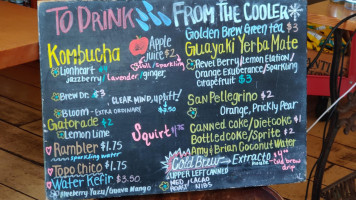 TO DRINK FROM THE COOLER
Kombucha
Lionheart $
jazzberry/lavender/ginger
Brew Dr. $3
CLEAR MIND, uplift!
Bloom - EXTRA ORDINAIRE $2.50
Gatorade $2
Lemon Lime
Rambler $1.75
sparkling water
Topo Chico $1.75
Water Kefir $3.50
Blueberry Yuzu/Guava Mango
Apple Juice $2
Still/Sparkling
Squirt $1.75
Golden Brew Green tea $
Guayaki Yerba Mate
Revel Berry/Lemon Elation/
Orange Exuberance/Sparkling
Grapefruit $3
San Pellegrino $2
Orange, Prickly Pear
Canned Coke/Diet Coke $1
Bottled Coke/Sprite $2
Amy & Brian Coconut Water
Cold Brew - Extracto $4
cold brew
UPPER LEFT CANNED
MED CACAO
ROAST NIBS